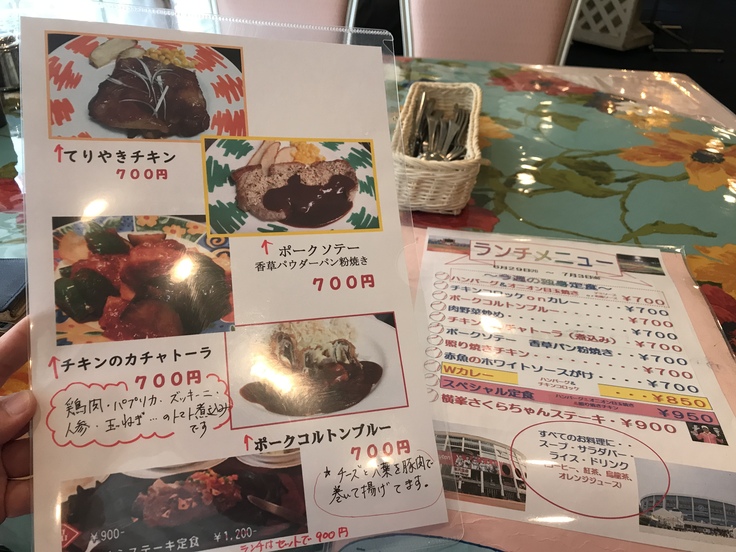 ↑てりやきチキン
700円
↑ポークソテー
香草パウダーパン粉焼き
700円
↑チキンのカチャトーラ
700円
鶏肉・パプリカ・ズッキーニ・
人参・玉ねぎ…のトマト煮込み
です
↑ポークコルドンブルー
700円
＊チーズと大葉を豚肉で
巻いて揚げてます。
¥900-
ステーキ定食
¥1,200-
ランチはセットで900円
ランチメニュー
6月29日㈪ ～ 7月3日㈮
～今週の
定食～
ハンバーグ&オニオン目玉焼き
¥700
チキンコロッケonカレー・・
¥700
ポークコルトンブルー・・・
¥700
肉野菜炒め・・・・
¥700
チキンカチャトーラ（煮込み）
¥700
ポークソテー 香草パン粉焼き・
¥700
照り焼きチキン・・・・
¥700
赤魚のホワイトソースがけ・・
¥700
Wカレー
ハンバーグ&
チキンコロッケ
・・・¥850
スペシャル定食
¥950
横峯さくらちゃんステーキ・¥900
すべてのお料理に・・
スープ・サラダバー
ライス・ドリンク
(コーヒー、紅茶、烏龍茶、
オレンジジュース)